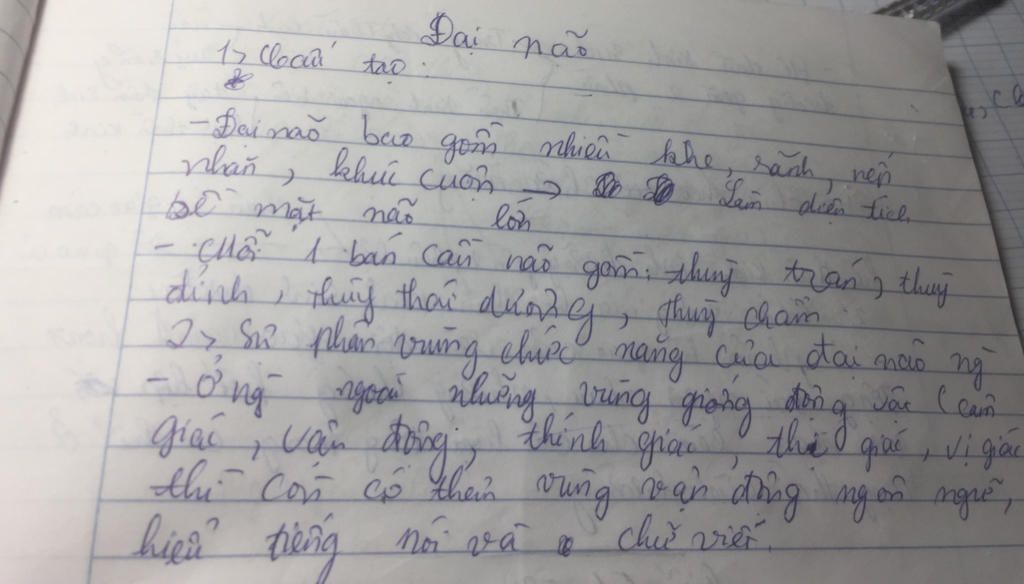 Đại não
1> Cấu tạo:
- Đại não bao gồm nhiều khe, rãnh, nếp
nhăn, khúc cuộn → Làm diện tích
bề mặt não lớn
- Mỗi 1 bán cầu não gồm: thuỳ trán, thuỳ
đỉnh, thùy thái dương, thuỳ chẩm
2> Sự phân vùng chức năng của đại não ng
- Ở ng ngoài những vùng giống động vật (cảm
giác, vận động, thính giác, thị giác, vị giác
thì còn có thêm vùng vận động ngôn ngữ,
hiểu tiếng nói và chữ viết.